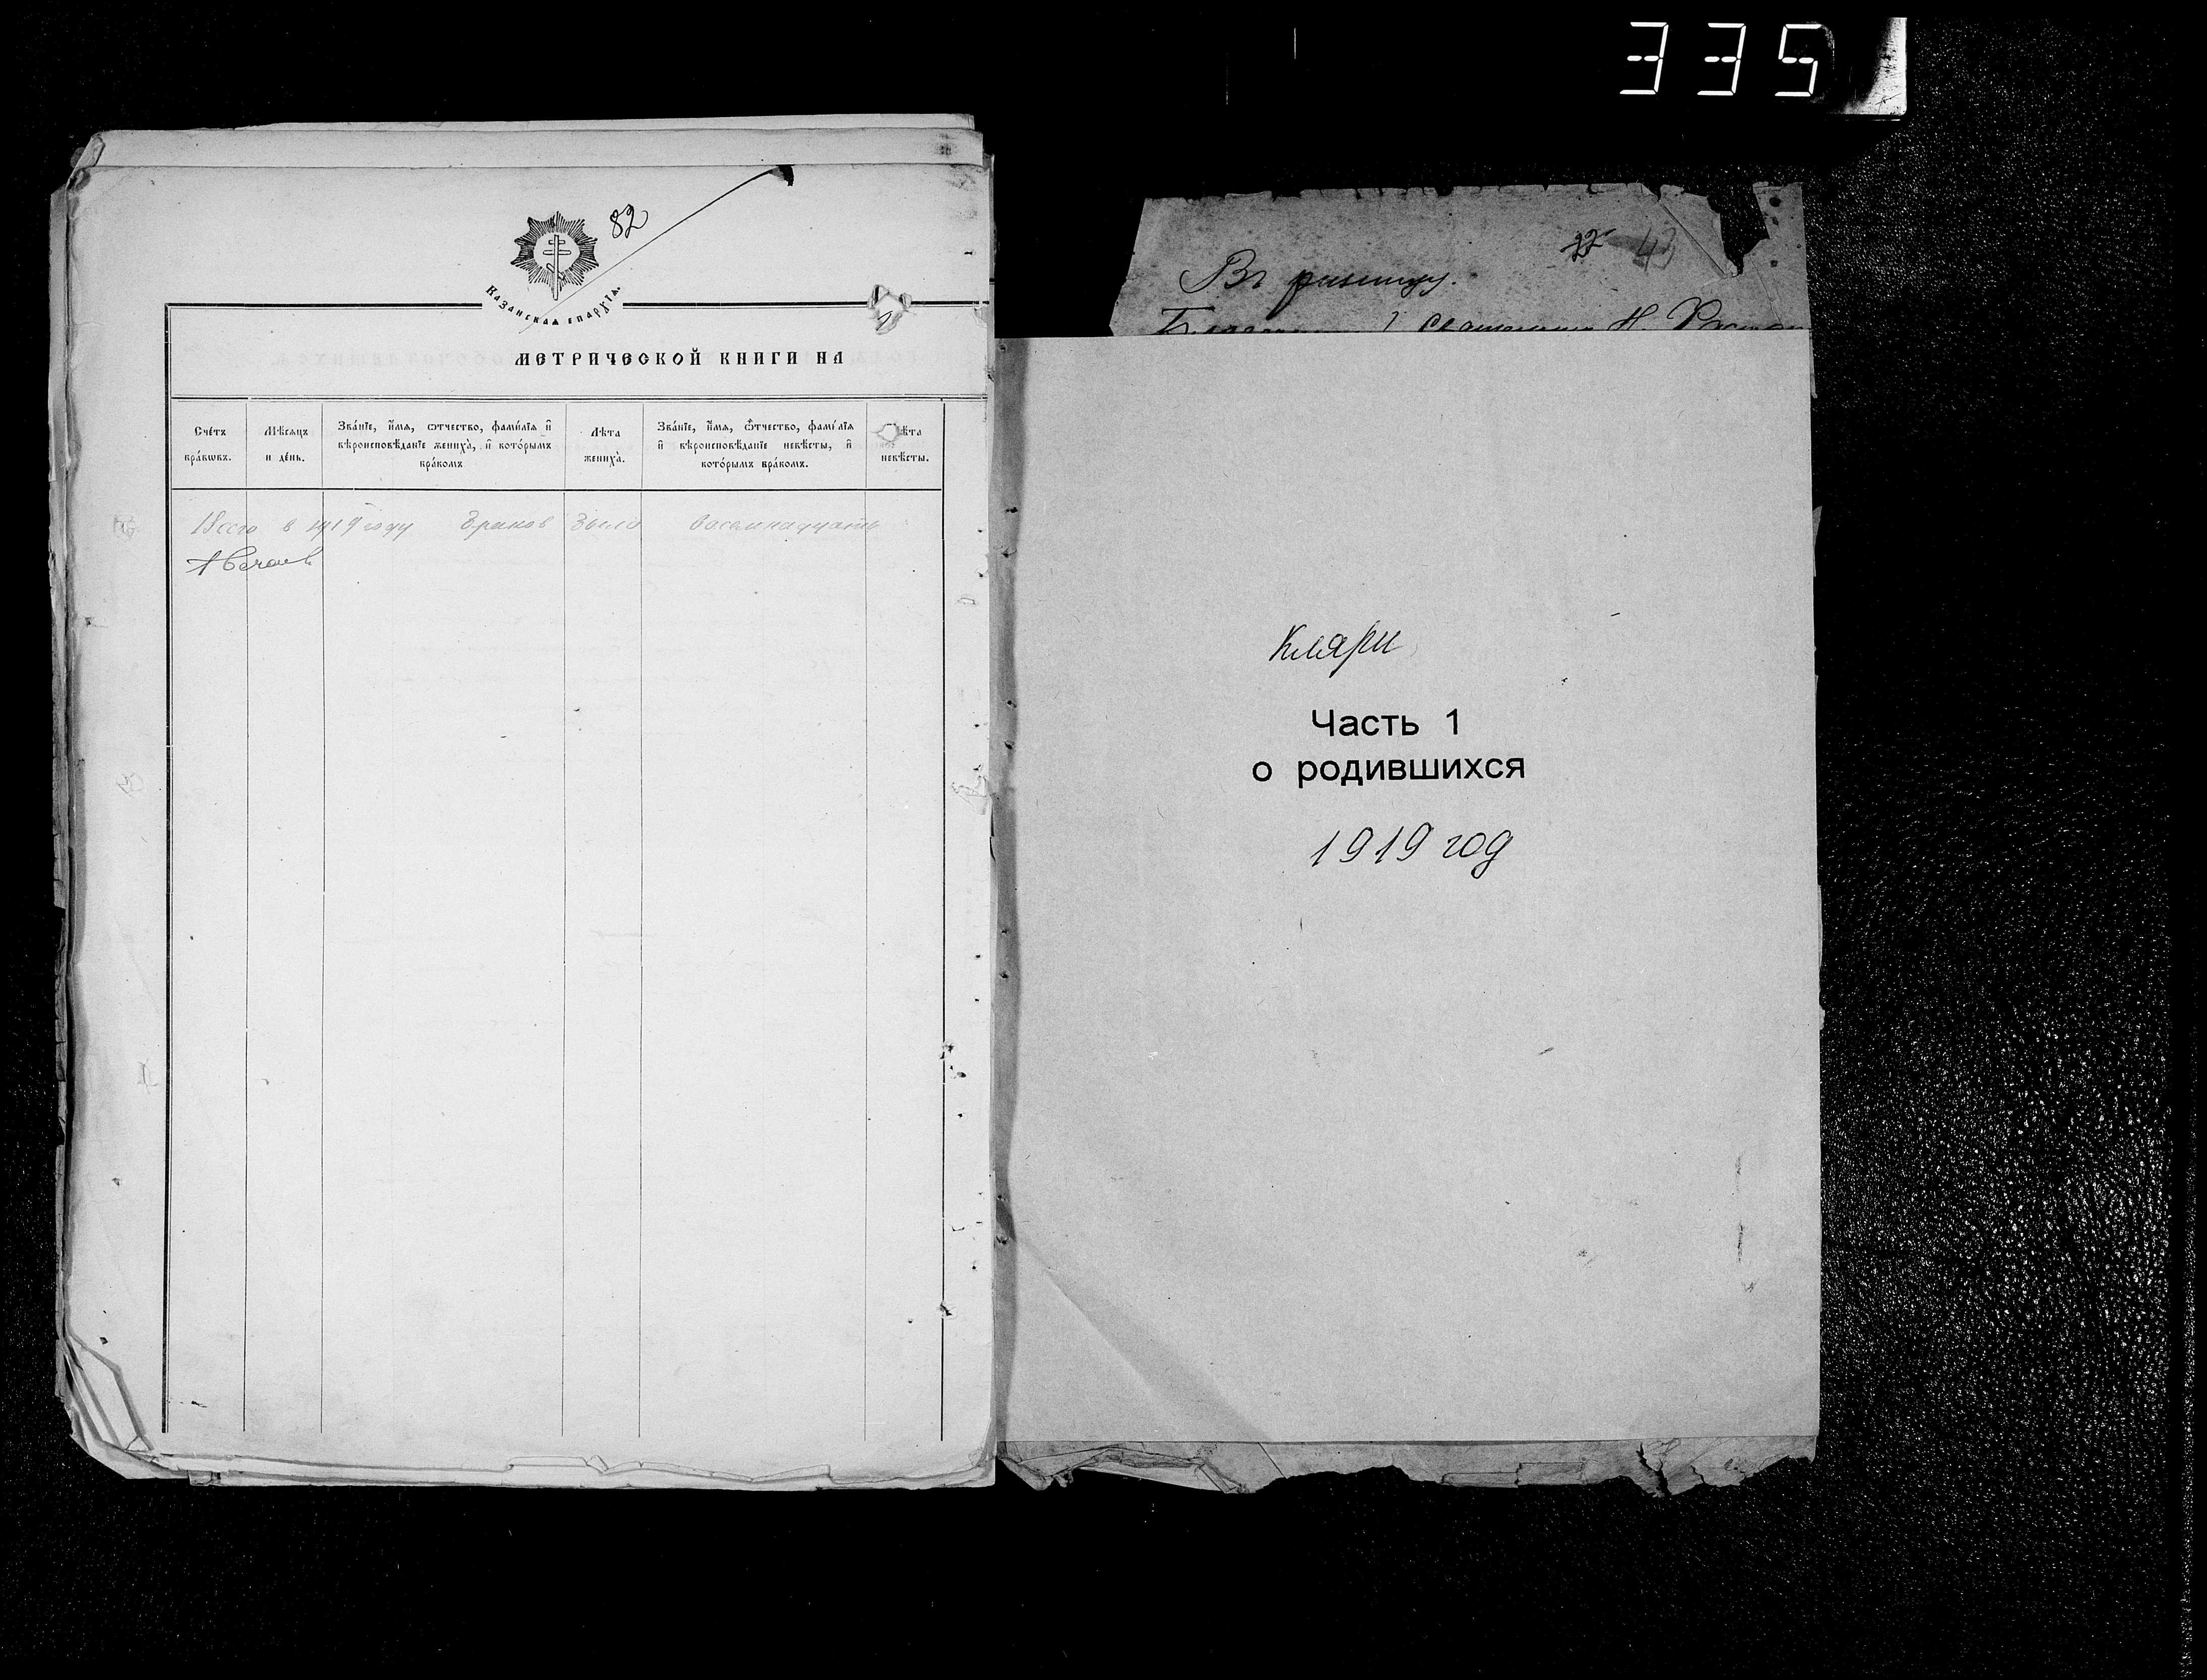 335
82
Казанская епархїа.
МЕТРИЧЕСКОЙ КНИГИ НА
Сче́тъ бра́кωвъ.
Мѣсѧцъ и де́нь.
Зва́нїе, и҆́мѧ, ѻ҆́тчество, фами́лїѧ и҆ вѣроисповѣ́данїе жениха̀, и҆ кото́рымъ бра́комъ
Лѣ́та жениха̀.
Зва́нїе, и҆́мѧ, ѻ҆́тчество, фами́лїѧ и҆ вѣроисповѣ́данїе невѣ́сты, и҆ кото́рымъ бра́комъ.
невѣ́сты.
Всего в 1919 году браков было восемнадцать
22 43
Въ ризницу.
Священника Н.
Кляри
Часть 1
о родившихся
1919 год